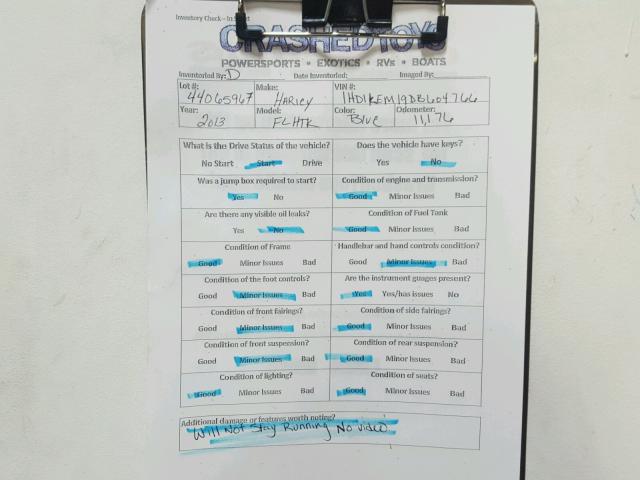 Inventory Check – In Sheet
CRASHEDTOYS
POWERSPORTS • EXOTICS • RVs • BOATS
Inventoried By: D Date Inventoried: Imaged By:
Lot #: 44065967 Make: Harley VIN #: 1HD1KEM19DB604766
Year: 2013 Model: FLHTK Color: Blue Odometer: 11,176
What is the Drive Status of the vehicle? Does the vehicle have keys?
No Start Start Drive Yes No
Was a jump box required to start? Condition of engine and transmission?
Yes No Good Minor Issues Bad
Are there any visible oil leaks? Condition of Fuel Tank
Yes No Good Minor Issues Bad
Condition of Frame Handlebar and hand controls condition?
Good Minor Issues Bad Good Minor Issues Bad
Condition of the foot controls? Are the instrument guages present?
Good Minor Issues Bad Yes Yes/has issues No
Condition of front fairings? Condition of side fairings?
Good Minor Issues Bad Good Minor Issues Bad
Condition of front suspension? Condition of rear suspension?
Good Minor Issues Bad Good Minor Issues Bad
Condition of lighting? Condition of seats?
Good Minor Issues Bad Good Minor Issues Bad
Additional damage or features worth noting?
Will Not Stay Running No video